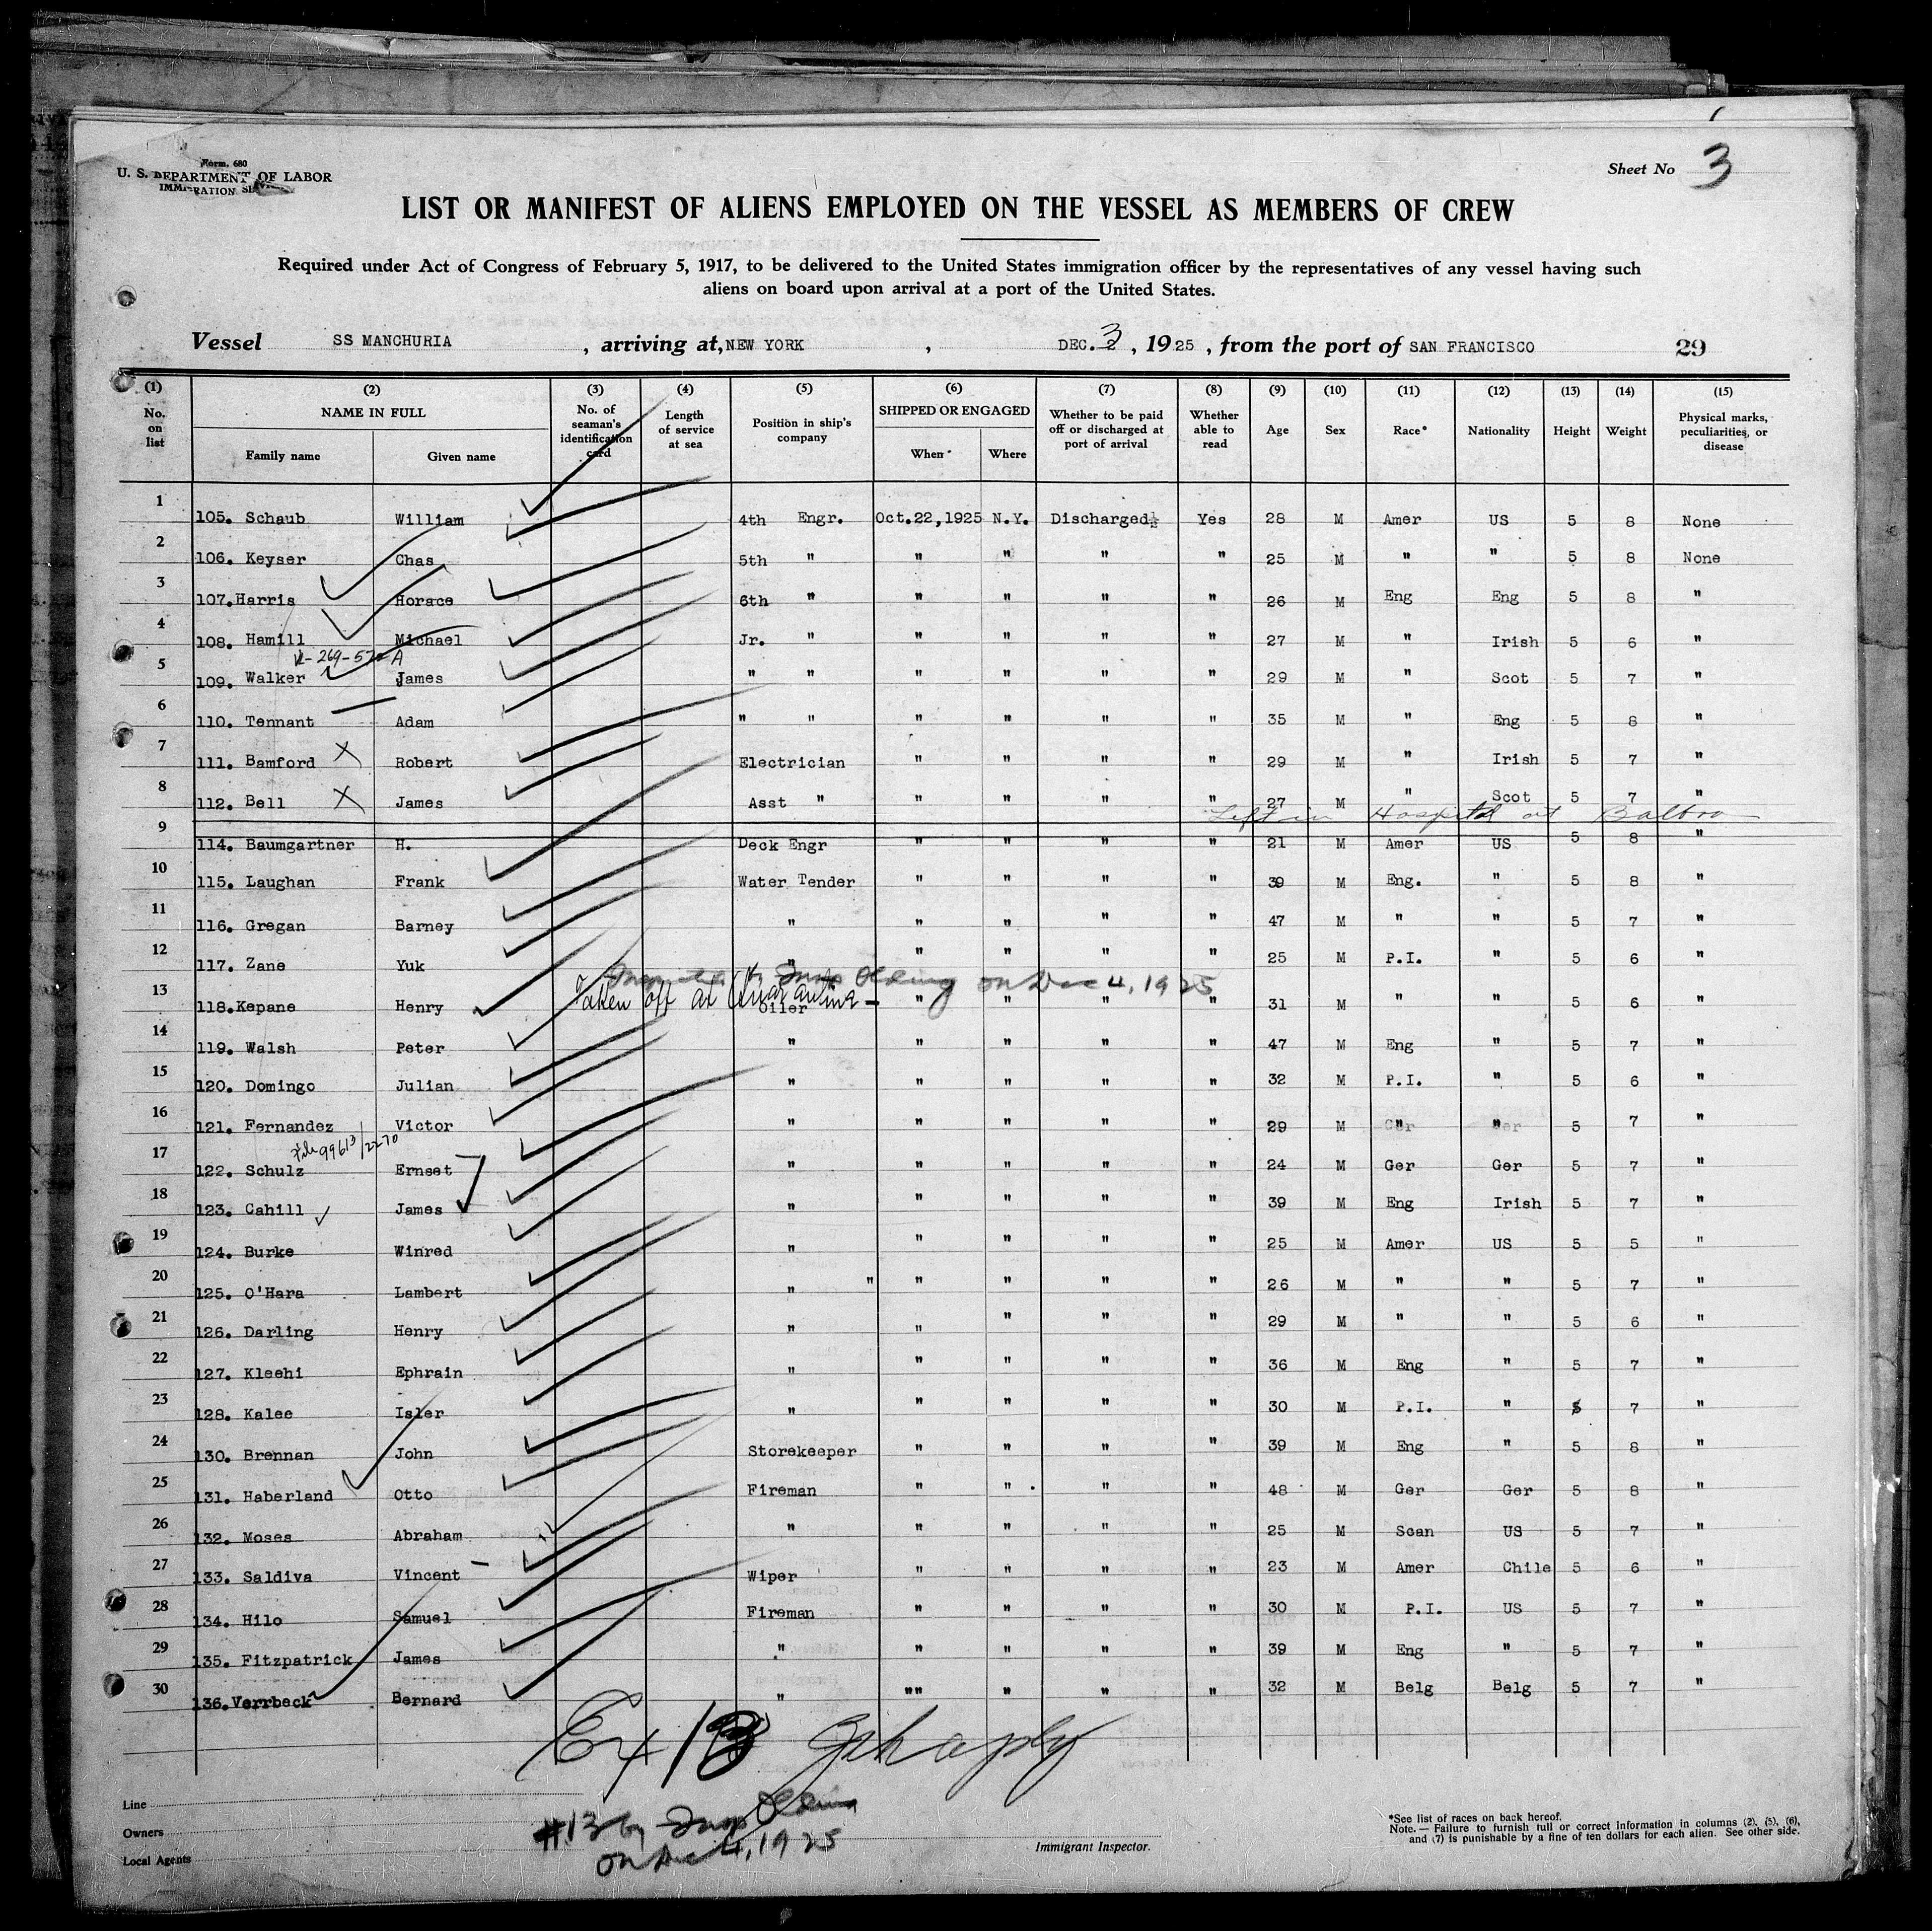 Form. 680
U. S. DEPARTMENT OF LABOR
IMMIGRATION
Sheet No 3
LIST OR MANIFEST OF ALIENS EMPLOYED ON THE VESSEL AS MEMBERS OF CREW
Required under Act of Congress of February 5, 1917, to be delivered to the United States immigration officer by the representatives of any vessel having such
aliens on board upon arrival at a port of the United States.
Vessel SS MANCHURIA , arriving at, NEW YORK , DEC. 3 , 1925 , from the port of SAN FRANCISCO 29
(1) (2) (3) (4) (5) (6) (7) (8) (9) (10) (11) (12) (13) (14) (15)
No. on list NAME IN FULL Family name Given name No. of seaman's identification card Length of service at sea Position in ship's company SHIPPED OR ENGAGED When Where Whether to be paid off or discharged at port of arrival Whether able to read Age Sex Race* Nationality Height Weight Physical marks, peculiarities, or disease
1 105. Schaub William 4th Engr. Oct.22,1925 N.Y. Discharged Yes 28 M Amer US 5 8 None
2 106. Keyser Chas 5th " " " " " 25 M " " 5 8 None
3 107. Harris Horace 6th " " " " " 26 M Eng Eng 5 8 "
4 108. Hamill Michael Jr. " " " " " 27 M " Irish 5 6 "
5 109. Walker James " " " " " " 29 M " Scot 5 7 "
6 110. Tennant Adam " " " " " " 35 M " Eng 5 8 "
7 111. Bamford X Robert Electrician " " " " 29 M " Irish 5 7 "
8 112. Bell X James Asst " " " " " 27 M " Scot 5 7 "
Left in Hospital at Balboa
9 114. Baumgartner H. Deck Engr " " " " 21 M Amer US 5 8 "
10 115. Laughan Frank Water Tender " " " " 39 M Eng. " 5 8 "
11 116. Gregan Barney " " " " " 47 M " " 5 7 "
12 117. Zane Yuk " " " " " 25 M P.I. " 5 6 "
on Dec 4, 1925
Taken off at Quarantine
13 118. Kepane Henry Oiler " " " " 31 M " " 5 6 "
14 119. Walsh Peter " " " " " 47 M Eng " 5 7 "
15 120. Domingo Julian " " " " " 32 M P.I. " 5 6 "
16 121. Fernandez Victor " " " " " 29 M " " 5 7 "
File 99613/2270
17 122. Schulz Ernset " " " " " 24 M Ger Ger 5 7 "
18 123. Cahill James " " " " " 39 M Eng Irish 5 7 "
19 124. Burke Winred " " " " " 25 M Amer US 5 5 "
20 125. O'Hara Lambert " " " " " " 26 M " " 5 7 "
21 126. Darling Henry " " " " " 29 M " " 5 6 "
22 127. Kleehi Ephrain " " " " " 36 M Eng " 5 7 "
23 128. Kalee Isler " " " " " 30 M P.I. " 5 7 "
24 130. Brennan John Storekeeper " " " " 39 M Eng " 5 8 "
25 131. Haberland Otto Fireman " " " " 48 M Ger Ger 5 8 "
26 132. Moses Abraham " " " " " 25 M Scan US 5 7 "
27 133. Saldiva Vincent Wiper " " " " 23 M Amer Chile 5 6 "
28 134. Hilo Samuel Fireman " " " " 30 M P.I. US 5 7 "
29 135. Fitzpatrick James " " " " " 39 M Eng " 5 7 "
30 136. Verrbeck Bernard " "" " " " 32 M Belg Belg 5 7 "
Ex 13
#13 by
on Dec 4, 1925
Line
Owners
Local Agents
Immigrant Inspector.
*See list of races on back hereof.
Note.—Failure to furnish full or correct information in columns (2), (5), (6),
and (7) is punishable by a fine of ten dollars for each alien. See other side.